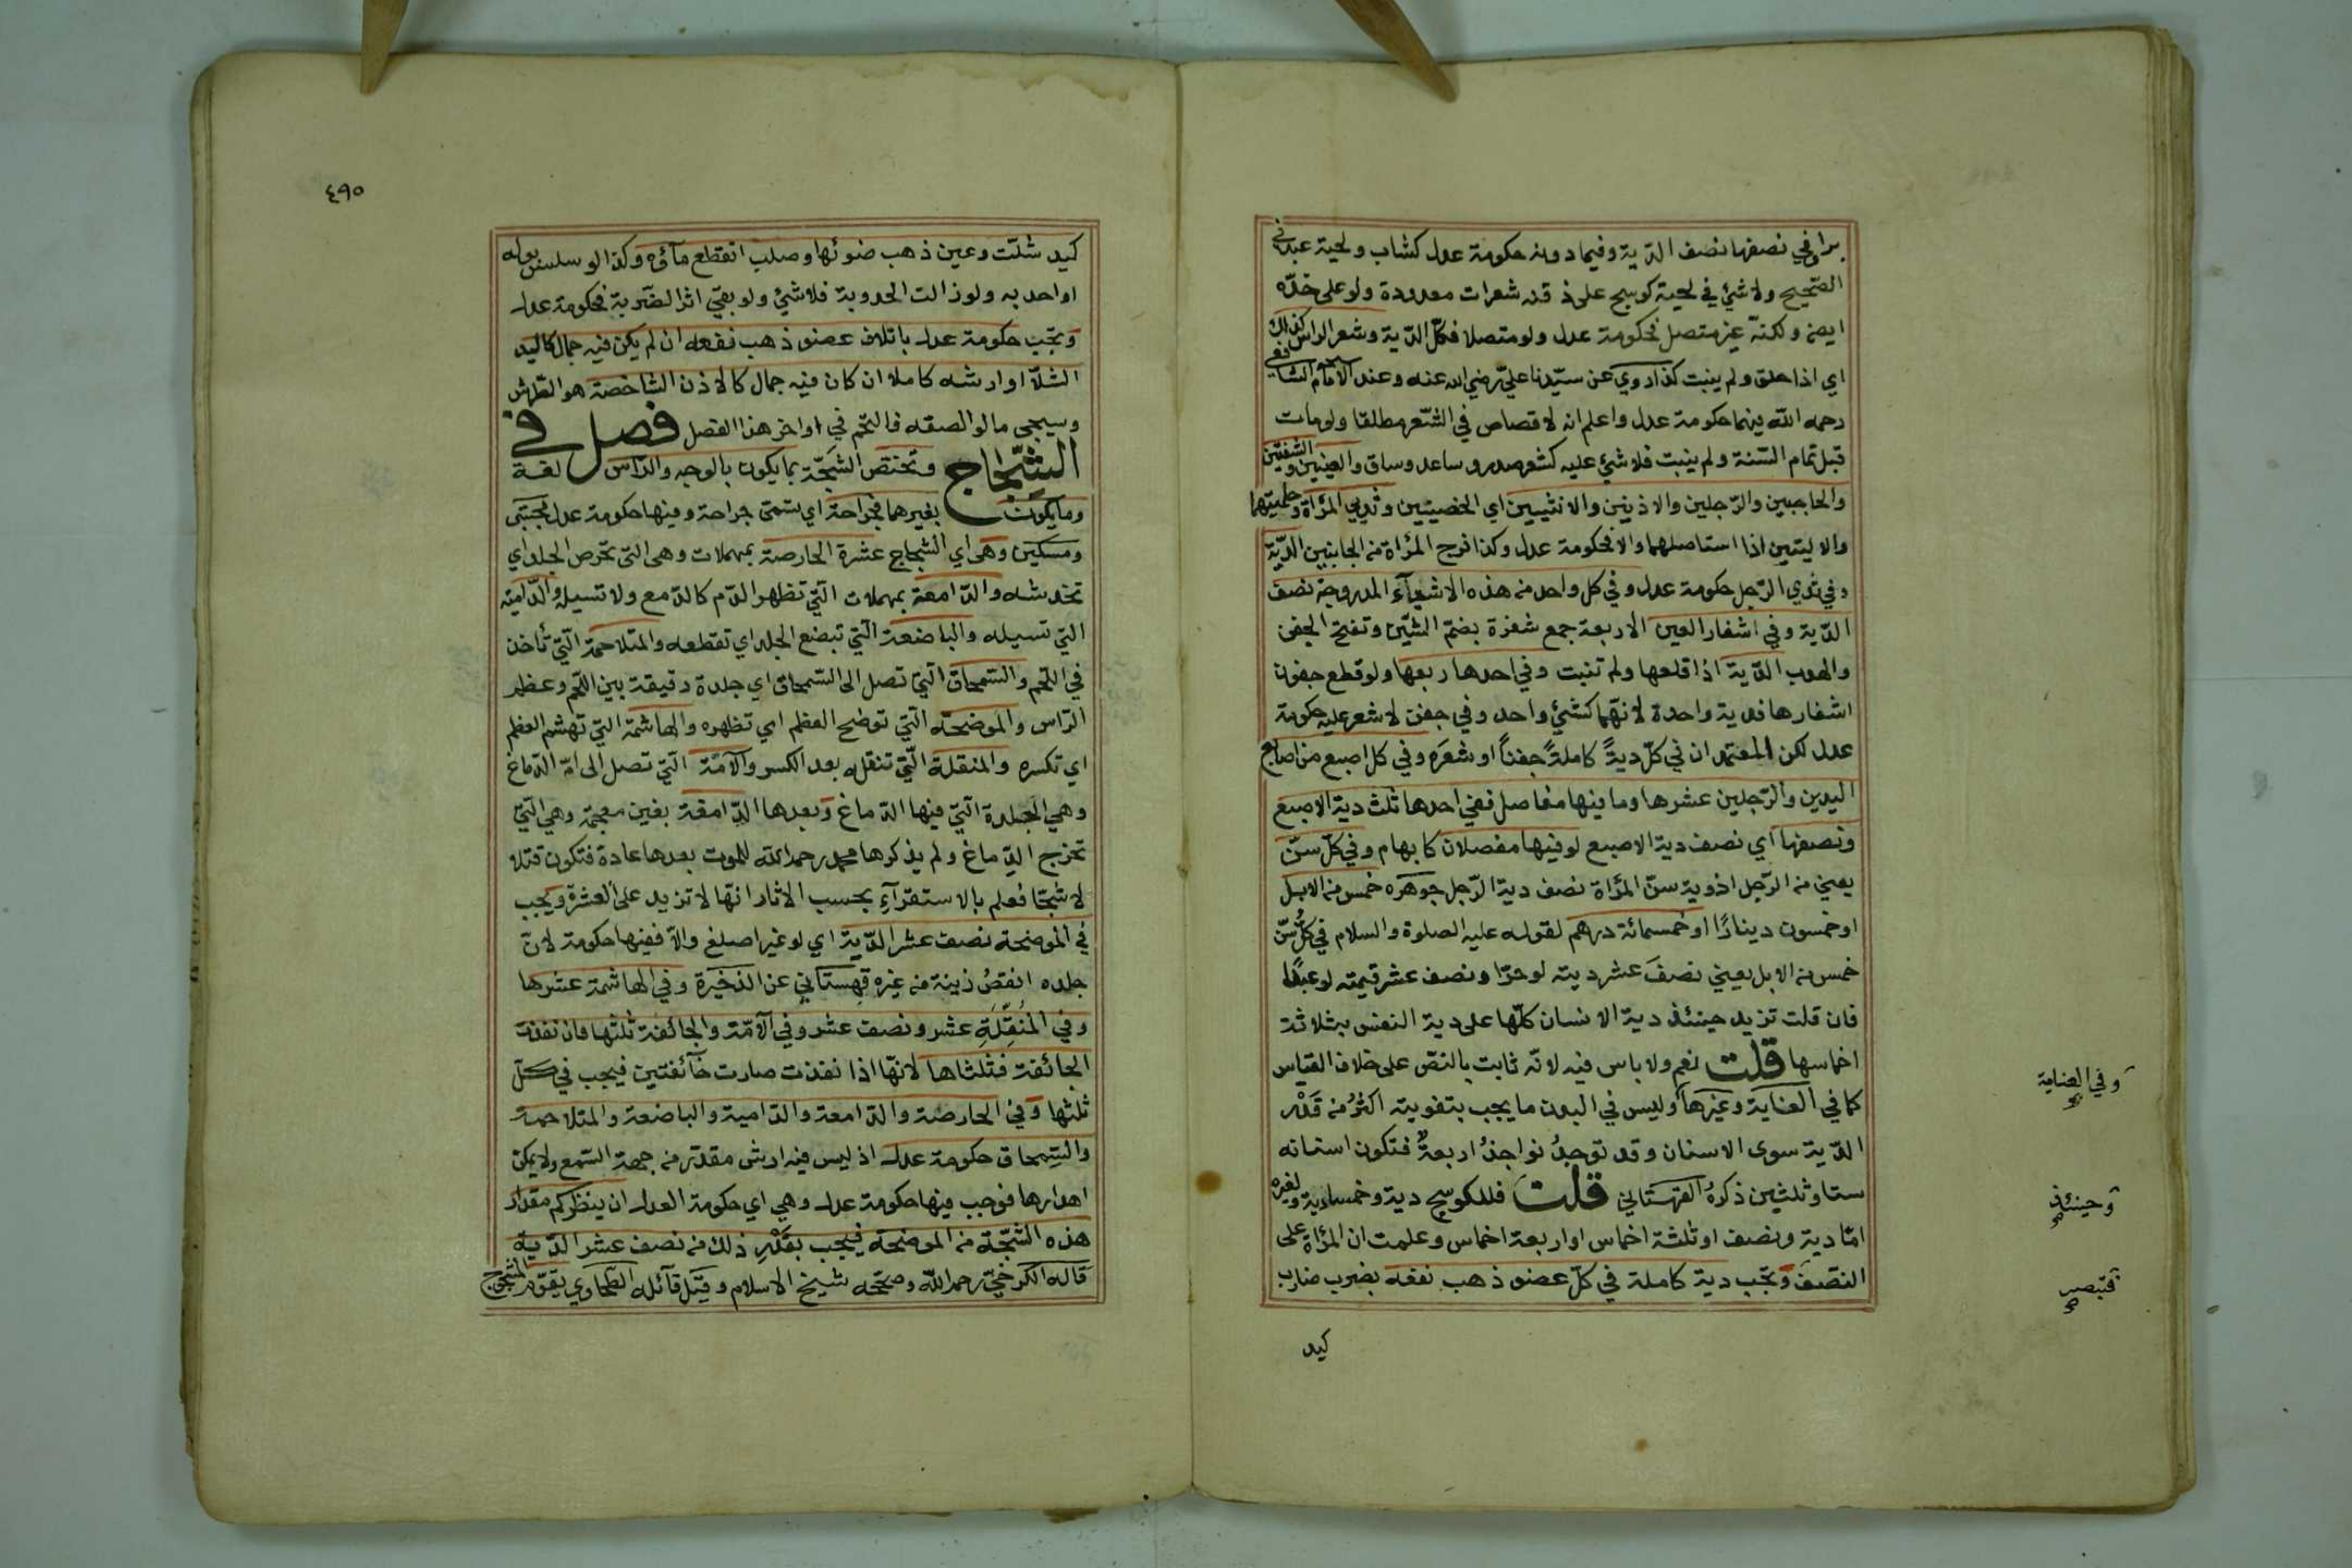 برا وفي نصفها نصف الدية وفيما دونه حكومة عدل كشاب ولحية عبد في
الصحيح ولا شئ في لحية كوسج على ذقنه شعرات معدودة ولو على خده
ايضا ولكنه غير متصل فحكومة عدل ولو متصلا فكل الدية وشعر الراس كذلك
اي اذا حلق ولم ينبت كذا روي عن سيدنا علي رضي الله عنه وعند الامام الشافعي
رحمه الله فيهما حكومة عدل واعلم انه لا قصاص في الشعر مطلقا ولو مات
قبل تمام السنة ولم ينبت فلا شئ عليه كشعر صدر وساعد وساق والعينين والشفتين
والحاجبين والرجلين والاذنين والانثيين اي الخصيتين وثديي المرأة وحلمتيهما
والاليتين اذا استاصلهما والا فحكومة عدل وكذا فرج المرأة من الجانبين الدية
وفي ثدي الرجل حكومة عدل وفي كل واحد من هذه الاشياء المزدوجة نصف
الدية وفي اشفار العين الاربعة جمع شفرة بضم الشين وتفتح الجفن
والهدب الدية اذا قلعها ولم تنبت وفي احدها ربعها ولو قطع جفون
اشفارها فدية واحدة لانهما كشئ واحد وفي جفن لا شعر عليه حكومة
عدل لكن المعتمد ان في كل دية كاملة جفنا او شعره وفي كل اصبع من اصابع
اليدين والرجلين عشرها وما فيها مفاصل ففي احدها ثلث دية الاصبع
ونصفها اي نصف دية الاصبع لو فيها مفصلان كابهام وفي كل سن
يعني من الرجل اذ دية سن المرأة نصف دية الرجل جوهره خمس من الابل
او خمسون دينارا او خمسمائة درهم لقوله عليه الصلوة والسلام في كل سن
خمس من الابل يعني نصف عشر ديته لو حرا ونصف عشر قيمته لو عبدا
فان قلت تزيد حينئذ دية الانسان كلها على دية النفس بثلاثة
اخماسها قلت نعم ولا باس فيه لانه ثابت بالنص على خلاف القياس
كما في الغناية وغيرها وليس في البدن ما يجب بتفويته اكثر من قدر
الدية سوى الاسنان وقد توجد نواجذ اربعة فتكون اسنانه
ستا وثلثين ذكره القهستاني قلت فللكوسج دية وخمسا دية ولغيره
اما دية ونصف او ثلثة اخماس او اربعة اخماس وعلمت ان المرأة على
النصف وتجب دية كاملة في كل عضو ذهب نفعه بضرب ضارب
كيد
وفي العناية
وحينئذ
فتبصر
٤٩٥
كيد شلت وعين ذهب ضوئها وصلب انقطع مآؤه وكذا لو سلس بوله
او احدبه ولو زالت الحدوبة فلا شئ ولو بقي اثر الضربة فحكومة عدل
وتجب حكومة عدل باتلاف عضو ذهب نفعه ان لم يكن فيه جمال كاليد
الشلا او ارشه كاملا ان كان فيه جمال كالاذن الشاخصة هو الطرش
وسيجى ما لو الصقه فالتحم في اواخر هذا الفصل فصل في
الشجاج وتختص الشجة بما يكون بالوجه والراس لغة
وما يكون بغيرهما فجراحة اي تسمى جراحة وفيها حكومة عدل مجتبى
ومسكين وهي اي الشجاج عشرة الحارصة بمهملات وهي التي تحرص الجلد اي
تخدشه والدامعة بمهملات التي تظهر الدم كالدمع ولا تسيله والدامية
التي تسيله والباضعة التي تبضع الجلد اي تقطعه والمتلاحمة التي تأخذ
في اللحم والسمحاق التي تصل الى السمحاق اي جلدة دقيقة بين اللحم وعظم
الراس والموضحة التي توضح العظم اي تظهره والهاشمة التي تهشم العظم
اي تكسره والمنقلة التي تنقله بعد الكسر والآمة التي تصل الى ام الدماغ
وهي الجلدة التي فيها الدماغ وبعدها الدامغة بغين معجمة وهي التي
تخرج الدماغ ولم يذكرها محمد رحمه الله للموت بعدها عادة فتكون قتلا
لا شجا فعلم بالاستقرآء بحسب الاثار انها لا تزيد على العشرة ويجب
في الموضحة نصف عشر الدية اي لو غير اصلع والا ففيها حكومة لان
جلده انقص زينة من غيره قهستاني عن الذخيرة وفي الهاشمة عشرها
وفي المنقلة عشر ونصف عشر وفي الآمة والجائفة ثلثها فان نفذت
الجائفة فثلثاها لانها اذا نفذت صارت جآئفتين فيجب في كل
ثلثها وفي الحارصة والدامعة والدامية والباضعة والمتلاحمة
والسمحاق حكومة عدل اذ ليس فيه ارش مقدر من جهة السمع ولا يمكن
اهدارها فوجب فيها حكومة عدل وهي اي حكومة العدل ان ينظر كم مقدار
هذه الشجة من الموضحة فيجب بقدر ذلك من نصف عشر الدية
قاله الكرخي رحمه الله وصححه شيخ الاسلام وقيل قآئله الطحاوي يقوم المشجوج